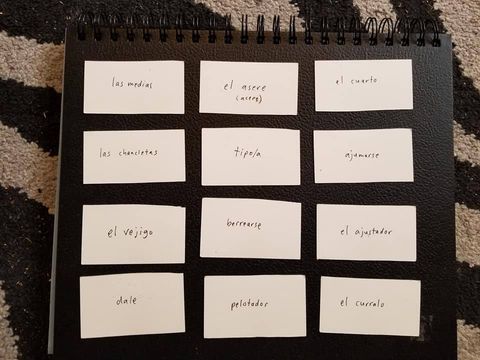 las medias
el asere
(acere)
el cuarto
las chancletas
tipo/a
ajumarse
el vejigo
berrearse
el ajustador
dale
pelotador
el curralo